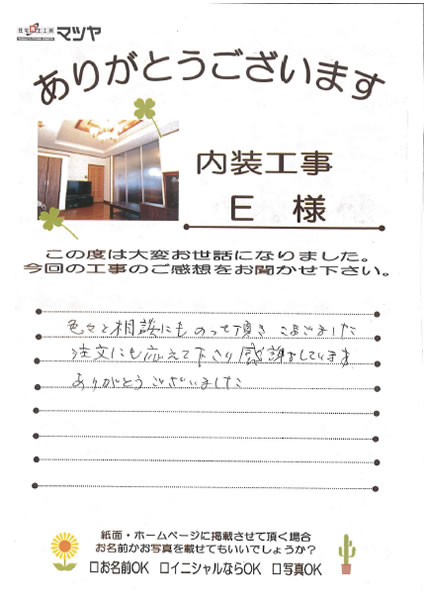 マツヤ
ありがとうございます
内装工事
E 様
この度は大変お世話になりました。
今回の工事のご感想をお聞かせ下さい。
色々と相談にものって頂き
注文にも応えて下さり感謝しています
ありがとうございました
紙面・ホームページに掲載させて頂く場合
お名前かお写真を載せてもいいでしょうか？
□お名前OK □イニシャルならOK □写真OK